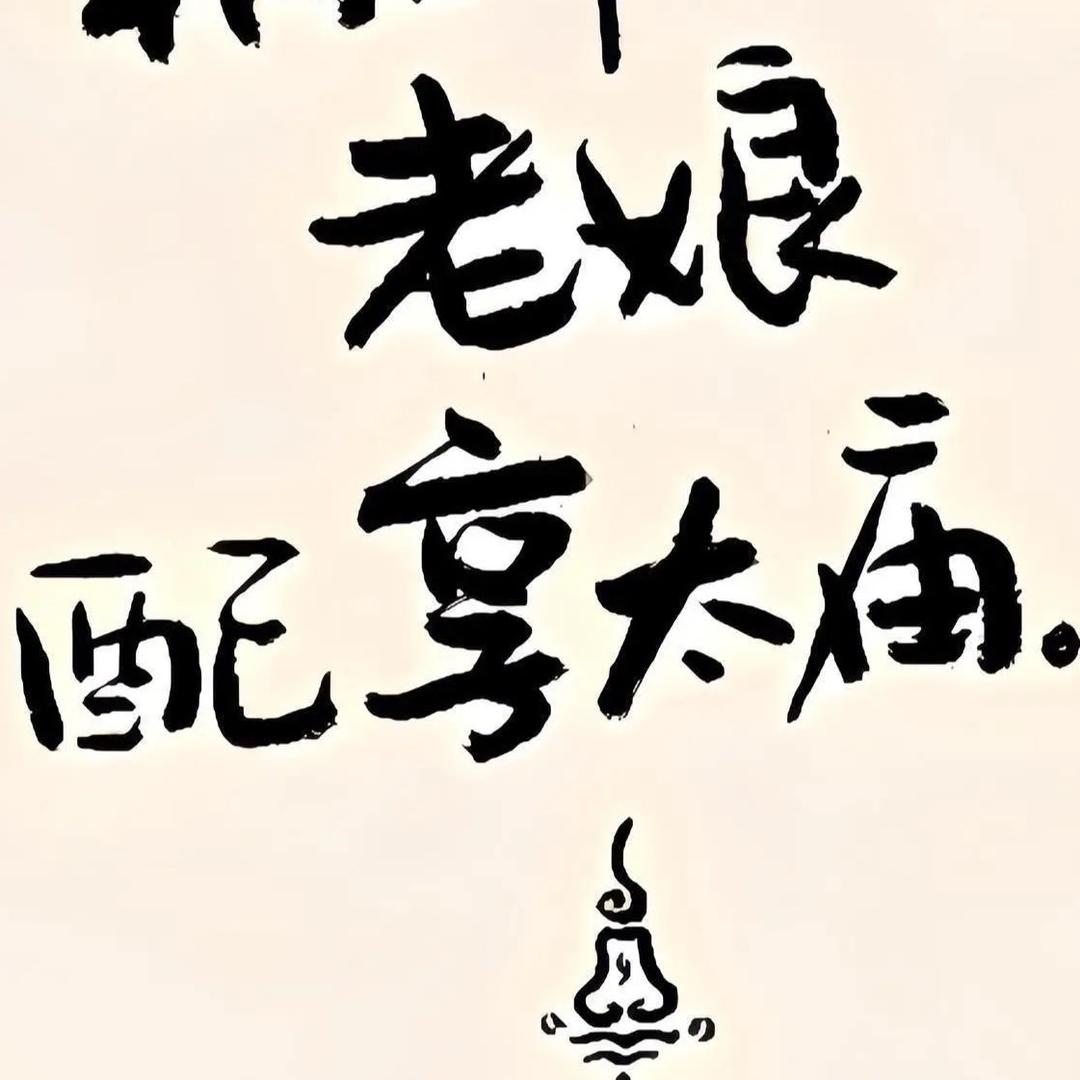 老娘
配享太庙。